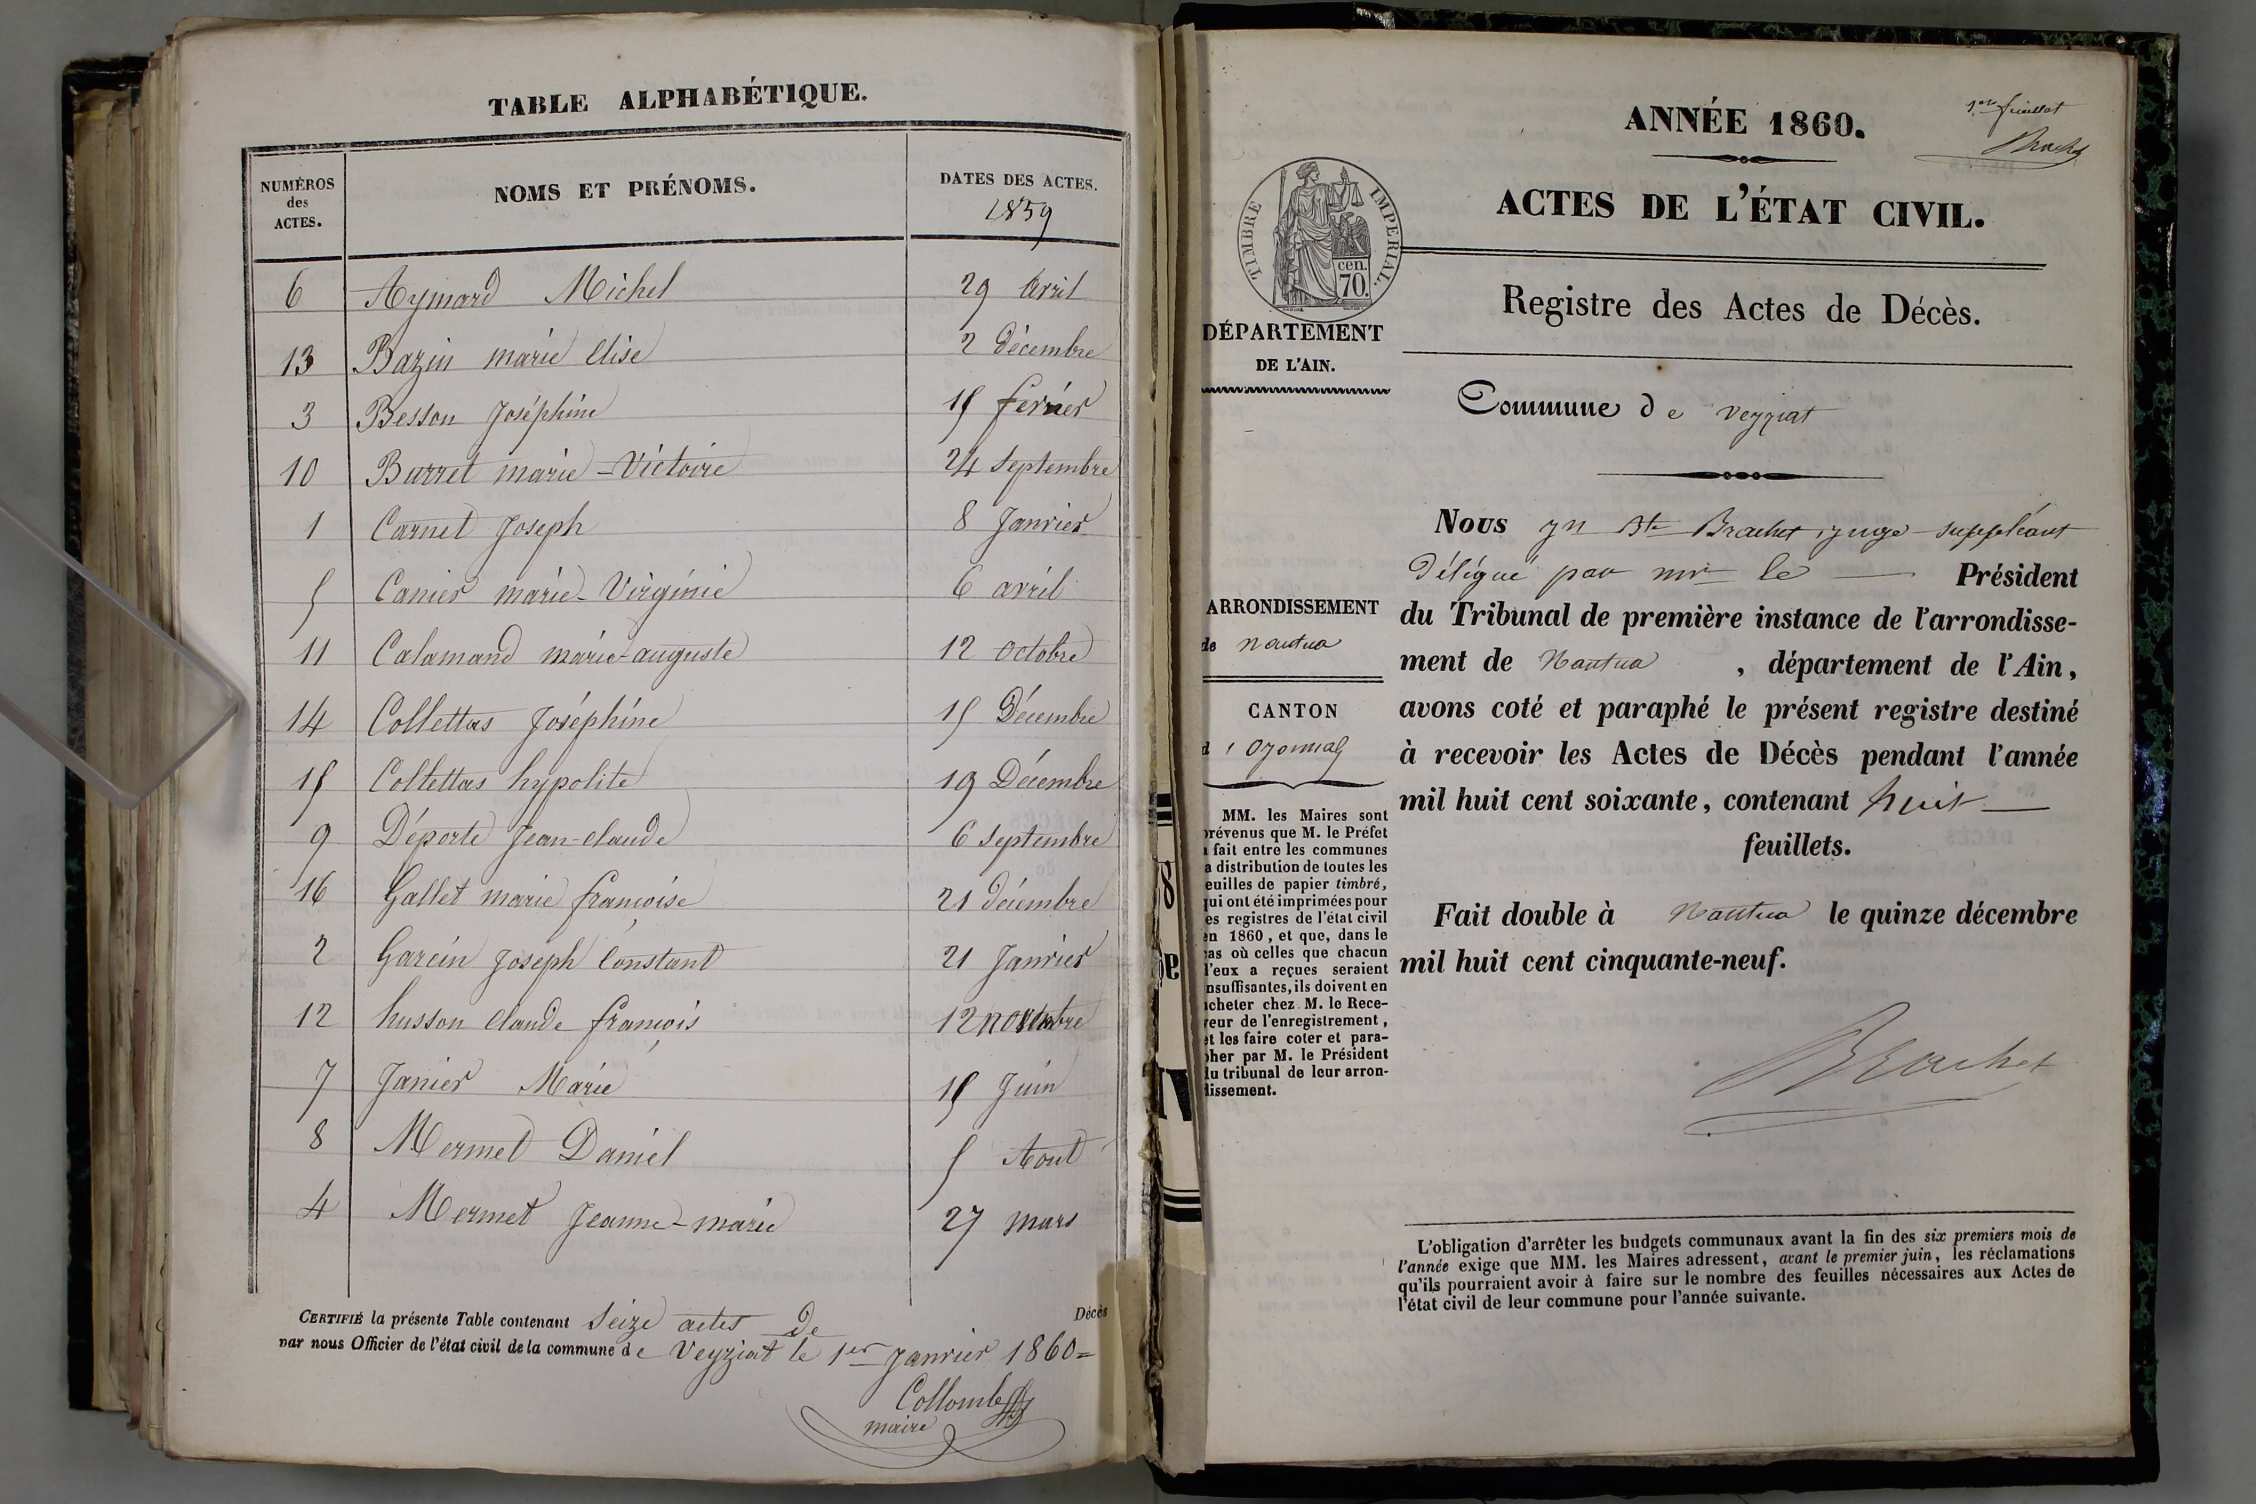 TABLE ALPHABÉTIQUE.
NUMÉROS des ACTES. NOMS ET PRÉNOMS. DATES DES ACTES. 1859
6 Aymard Michel 29 Avril
13 Bazin marie Elise 2 décembre
3 Besson Joséphine 15 ferier
10 Burret marie-Victoire 24 septembre
1 Carnet Joseph 8 Janvier
5 Canier marie-Virginie 6 avril
11 Calamand marie-auguste 12 octobre
14 Collettas Joséphine 15 Décembre
15 Collettas hypolite 19 Décembre
9 Déporte Jean-claude 6 septembre
16 Gallet marie françoise 21 décembre
2 Garcin Joseph Constant 21 Janvier
12 husson claude françois 12 novembre
7 Janier Marie 15 Juin
8 Mermet Daniel 5 Aout
4 Mermet Jeanne-marie 27 mars
CERTIFIÉ la présente Table contenant seize actes de Décès
par nous Officier de l'état civil de la commune de Veyziat le 1er Janvier 1860=
Collomb
maire
1er feuillet
Brachet
ANNÉE 1860.
ACTES DE L'ÉTAT CIVIL.
TIMBRE IMPERIAL.
cen.
70.
Registre des Actes de Décès.
DÉPARTEMENT
DE L'AIN.
Commune de veyziat
Nous Jn Bte Brachet, juge-suppléant
Délégué par mr le Président
du Tribunal de première instance de l'arrondisse-
ment de Nantua, département de l'Ain,
avons coté et paraphé le présent registre destiné
à recevoir les Actes de Décès pendant l'année
mil huit cent soixante, contenant huit
feuillets.
Fait double à Nantua le quinze décembre
mil huit cent cinquante-neuf.
Brachet
ARRONDISSEMENT
de Nantua
CANTON
d'Oyonnax
MM. les Maires sont
prévenus que M. le Préfet
a fait entre les communes
a distribution de toutes les
euilles de papier timbré,
qui ont été imprimées pour
es registres de l'état civil
en 1860, et que, dans le
cas où celles que chacun
l'eux a reçues seraient
nsuffisantes, ils doivent en
acheter chez M. le Rece-
veur de l'enregistrement,
et les faire coter et para-
pher par M. le Président
du tribunal de leur arron-
dissement.
L'obligation d'arrêter les budgets communaux avant la fin des six premiers mois de
l'année exige que MM. les Maires adressent, avant le premier juin, les réclamations
qu'ils pourraient avoir à faire sur le nombre des feuilles nécessaires aux Actes de
l'état civil de leur commune pour l'année suivante.